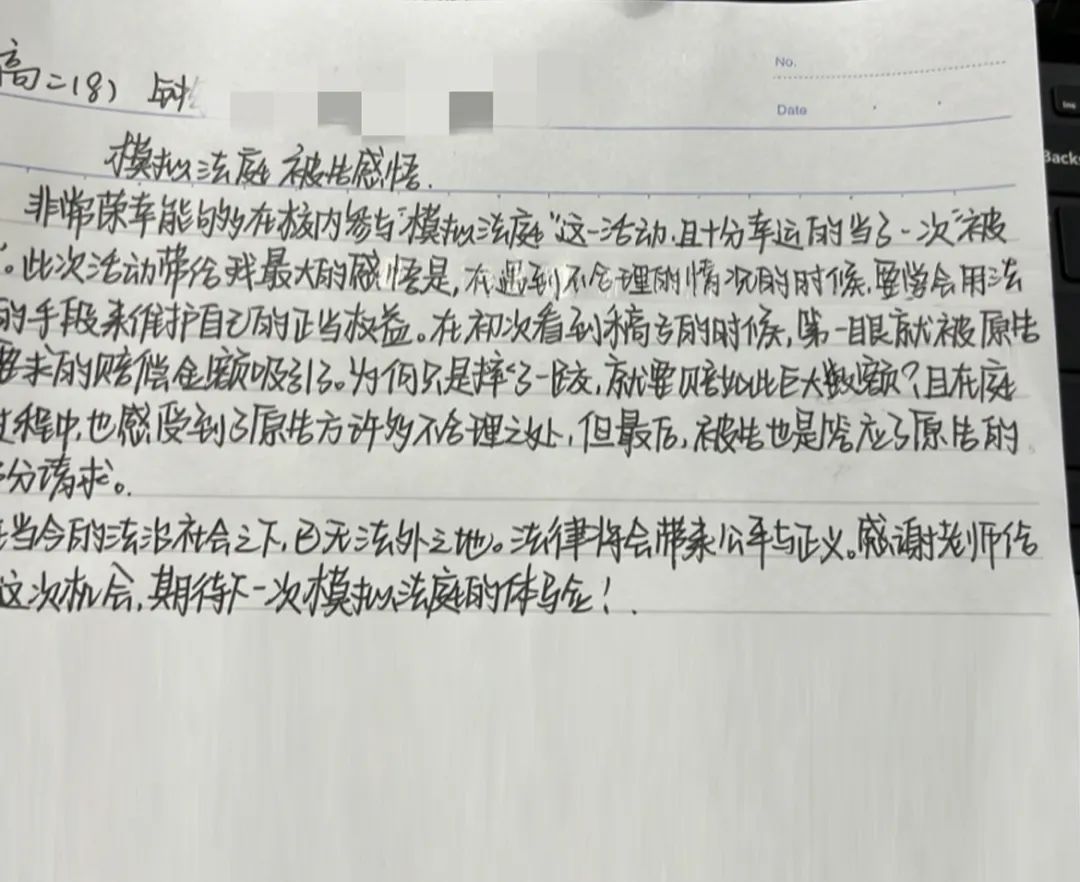 高二(8)
No.
Date
模拟法庭被告感悟.
非常荣幸能够在校内参与"模拟法庭"这一活动,且十分幸运的当了一次"被
"。此次活动带给我最大的感悟是,在遇到不合理的情况的时候,要学会用法
的手段来维护自己的正当权益。在初次看到稿子的时候,第一眼就被原告
要求的赔偿金额吸引了。为何只是摔了一跤,就要赔如此巨大数额?且在庭
过程中,也感受到了原告方许多不合理之处,但最后,被告也是答应了原告的
分请求。
在当今的法治社会之下,已无法外之地。法律将会带来公平与正义。感谢老师给
这次机会,期待下一次模拟法庭的体验!
Ins
Backs